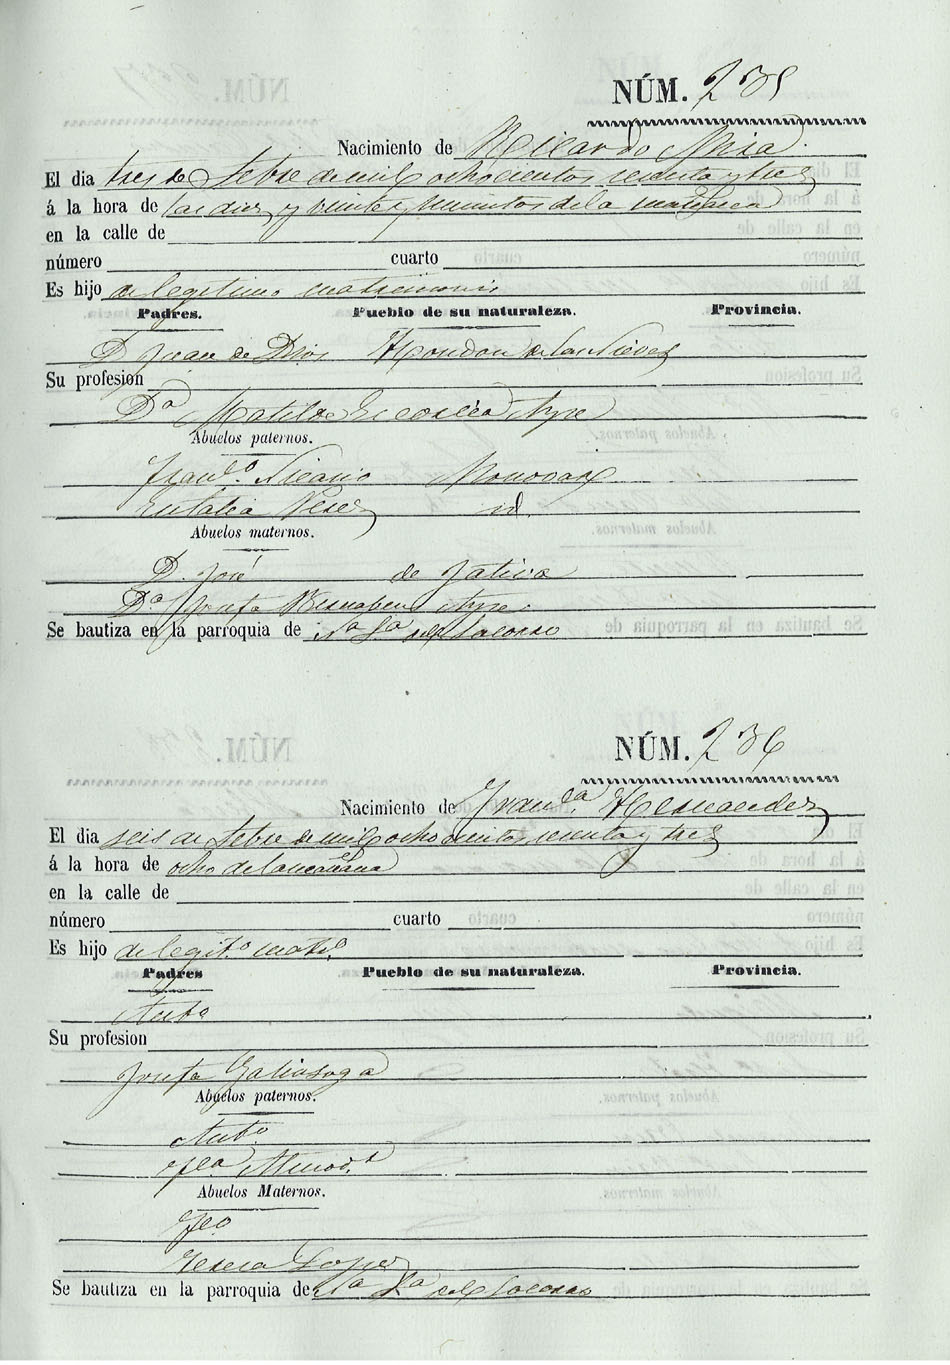 NÚM. 235
Nacimiento de Ricardo Mira.
El dia tres de Setbre de mil ochocientos sesenta y tres
á la hora de las diez y veinte minutos de la mañana
en la calle de
número cuarto
Es hijo de legitimo matrimonio
Padres. Pueblo de su naturaleza. Provincia.
D. Juan de Dios Hondon de las Nieves
Su profesion
Dª Matilde Aspe
Abuelos paternos.
Franco. Monovar
Eulalia Perez id.
Abuelos maternos.
D. José de Jativa
Dª Josefa Bernabeu Aspe
Se bautiza en la parroquia de Nª Sª del Socorro
NÚM. 236
Nacimiento de Franca Hernandez
El dia seis de Setbre de mil ochocientos sesenta y tres
á la hora de ocho de la mañana
en la calle de
número cuarto
Es hijo de legito. matrio.
Padres Pueblo de su naturaleza. Provincia.
Anto
Su profesion
Josefa Galiasoga
Abuelos paternos.
Anto
Abuelos Maternos.
Fco
Teresa Lopez
Se bautiza en la parroquia de Nª Sª del Socorro